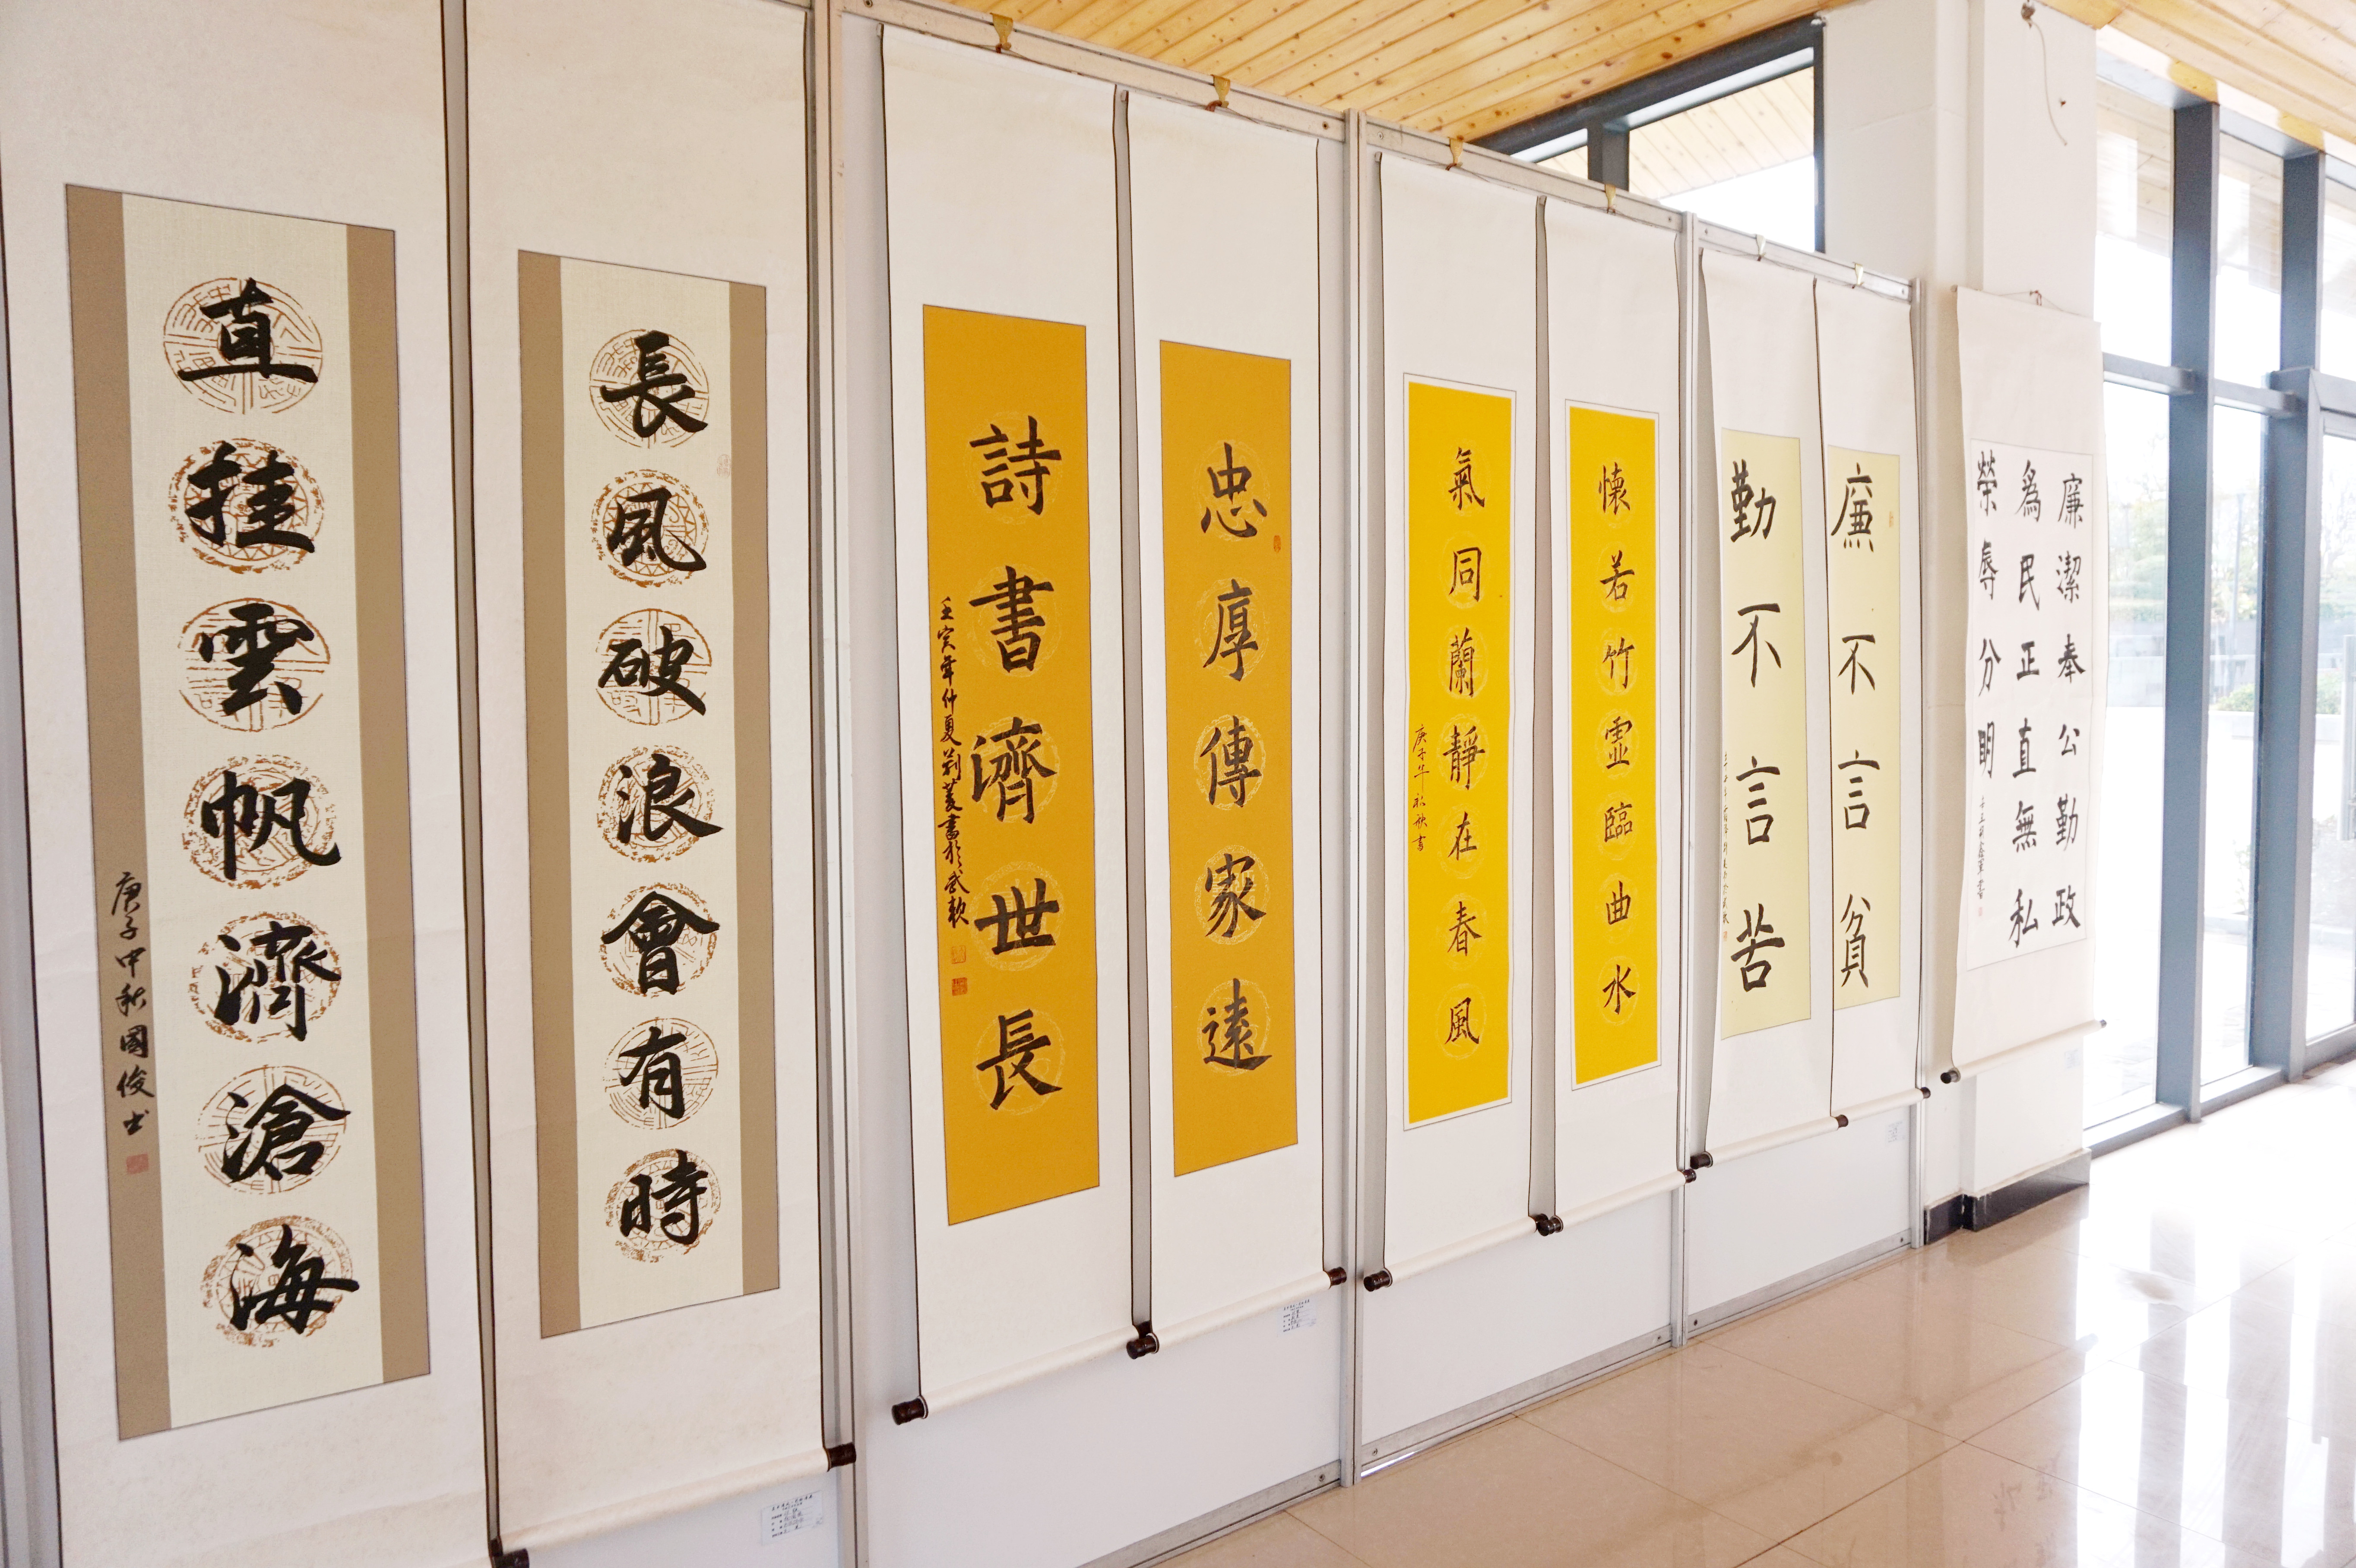 廉潔奉公勤政
為民正直無私
榮辱分明
廉不言貧
勤不言苦
懷若竹虛臨曲水
氣同蘭靜在春風
庚子年秋
忠厚傳家遠
詩書濟世長
壬寅年仲夏
長風破浪會有時
直挂雲帆濟滄海
庚子中秋國俊书